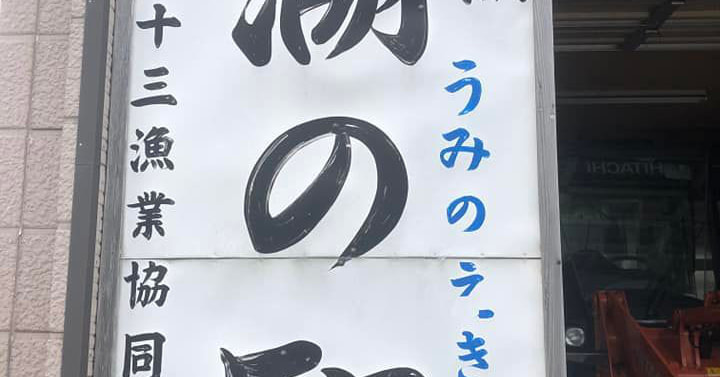 うみのえき
の
十三漁業協同
HITACHI